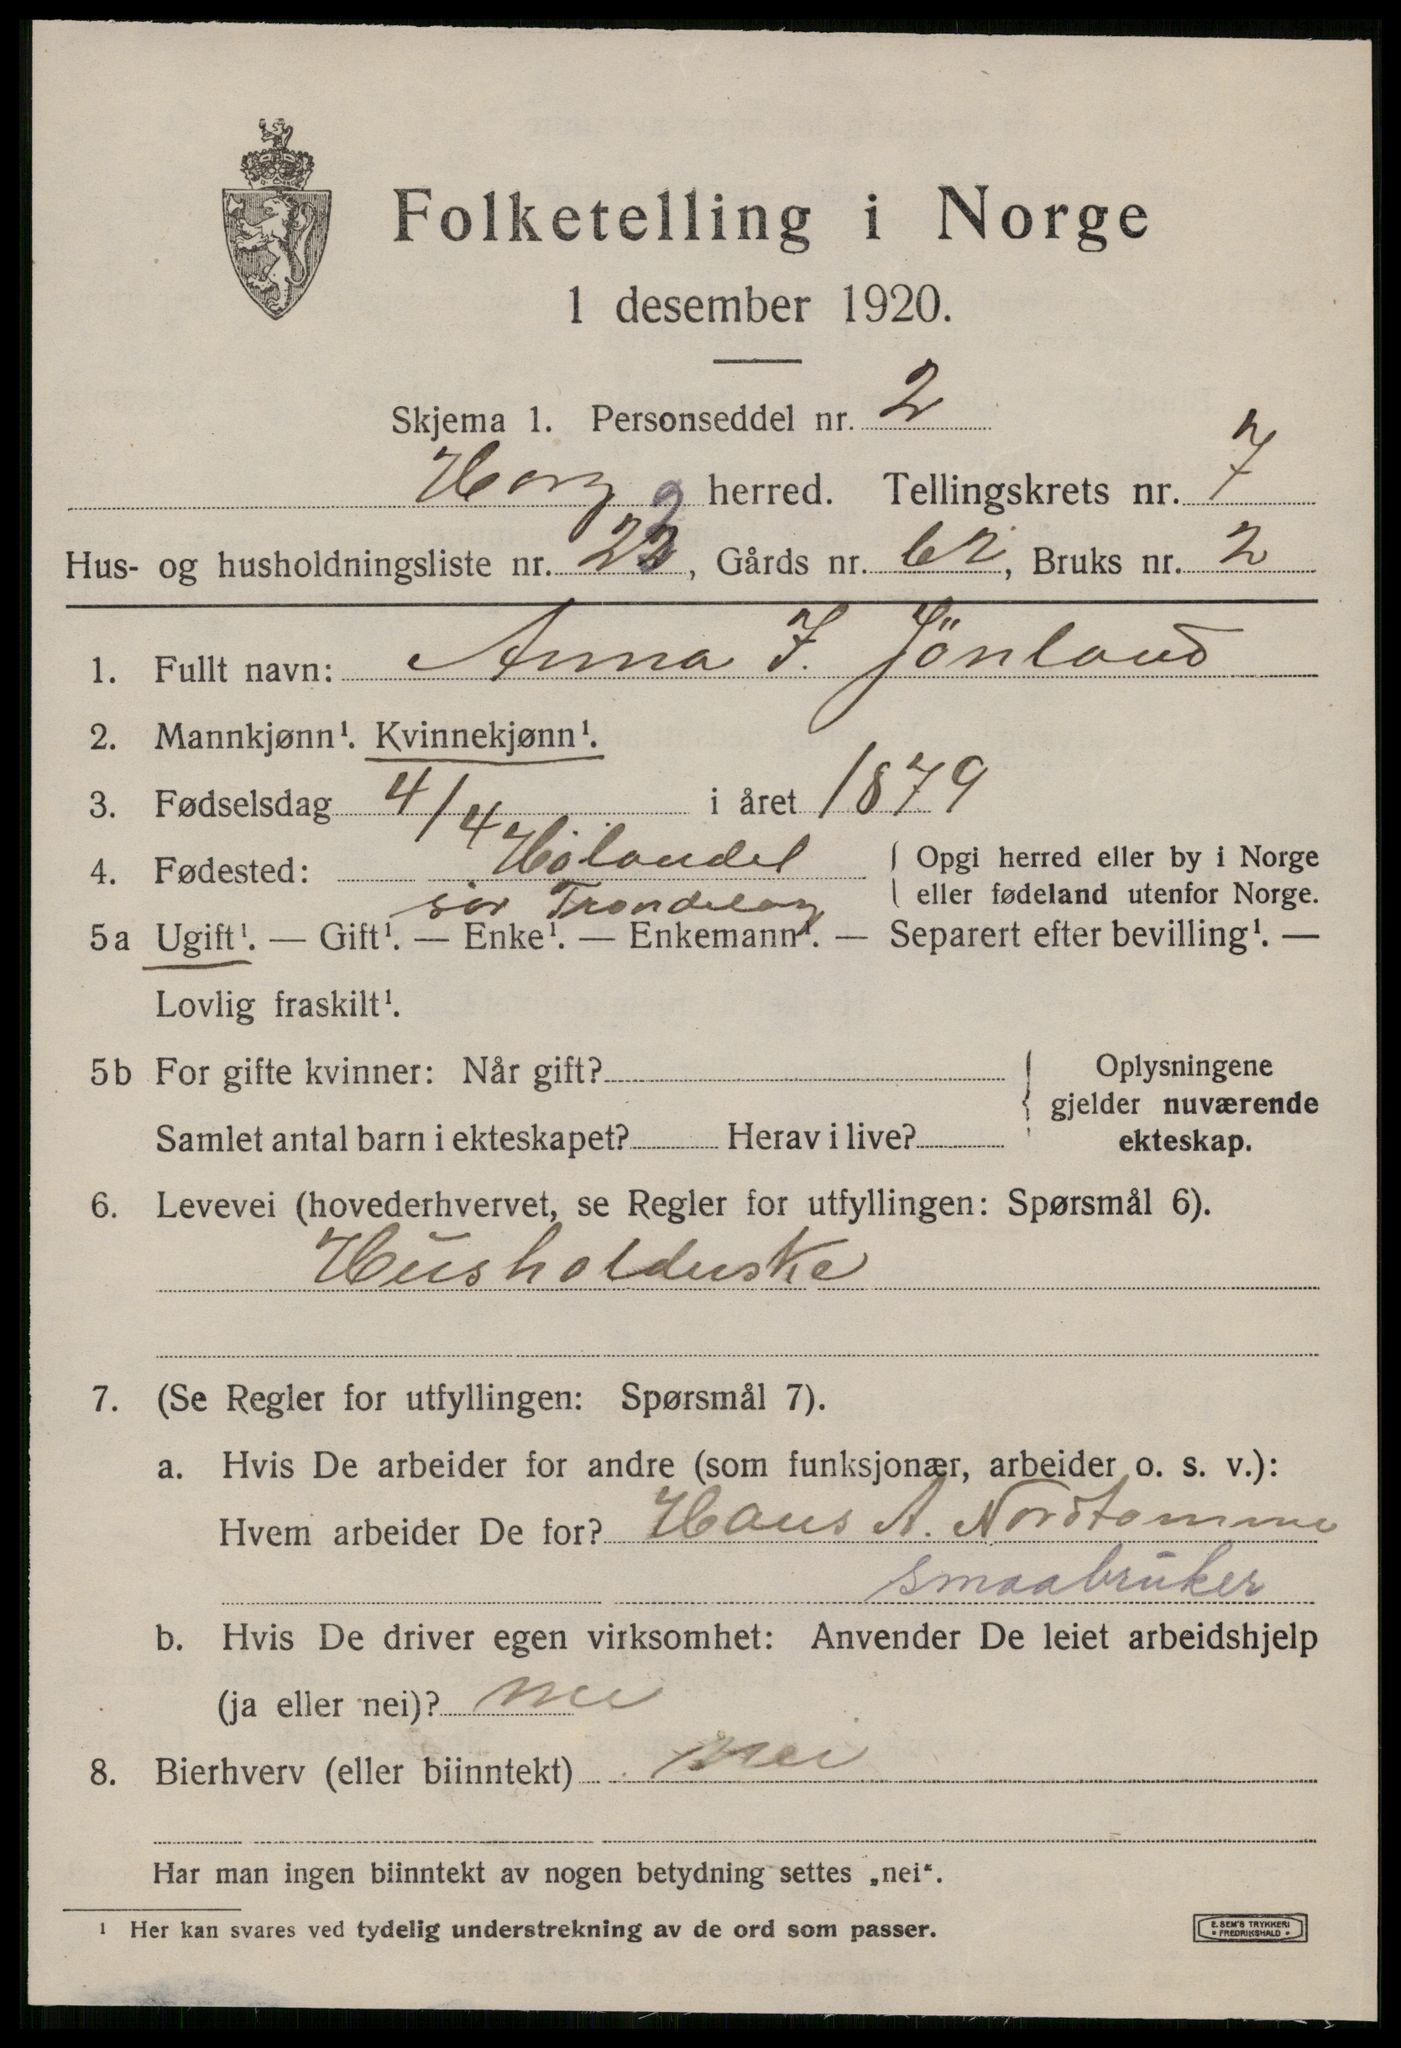 Folketelling i Norge
1 desember 1920.
Skjema 1. Personseddel nr. 2
Horg herred. Tellingskrets nr. 7
Hus- og husholdningsliste nr. 22, Gårds nr. 62, Bruks nr. 2
1. Fullt navn: Anna J. Jönland
2. Mannkjønn¹. Kvinnekjønn¹.
3. Fødselsdag 4/4 i året 1879
4. Fødested: Hölandet { Opgi herred eller by i Norge
sör Trondelag { eller fødeland utenfor Norge.
5a Ugift¹. — Gift¹. — Enke¹. — Enkemann¹. — Separert efter bevilling¹. —
Lovlig fraskilt¹.
5b For gifte kvinner: Når gift? { Oplysningene
gjelder nuværende
Samlet antal barn i ekteskapet? Herav i live? ekteskap.
6. Levevei (hovederhvervet, se Regler for utfyllingen: Spørsmål 6).
Husholderske
7. (Se Regler for utfyllingen: Spørsmål 7).
a. Hvis De arbeider for andre (som funksjonær, arbeider o. s. v.):
Hvem arbeider De for? Hans A. Nordtømme
smaabruker
b. Hvis De driver egen virksomhet: Anvender De leiet arbeidshjelp
(ja eller nei)? nei
8. Bierhverv (eller biinntekt) nei
Har man ingen biinntekt av nogen betydning settes „nei“.
¹ Her kan svares ved tydelig understrekning av de ord som passer.
E. SEM'S TRYKKERI
FREDRIKSHALD